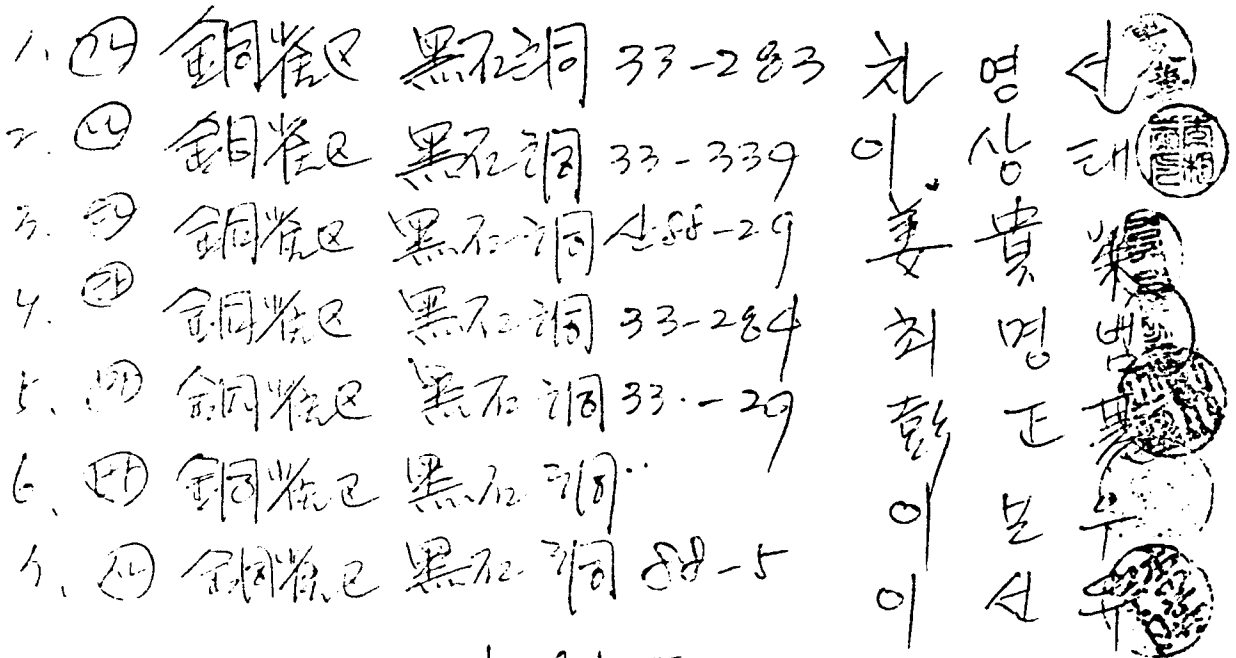 1. 銅雀区 黑石洞 33-283 차영선
2. 銅雀区 黑石洞 33-339 이상태
3. 銅雀区 黑石洞 산88-29 姜貴榮
4. 銅雀区 黑石洞 33-284 최명범
5. 銅雀区 黑石洞 33-29 彭正
6. 銅雀区 黑石洞 〃 이보우
7. 銅雀区 黑石洞 88-5 이선우